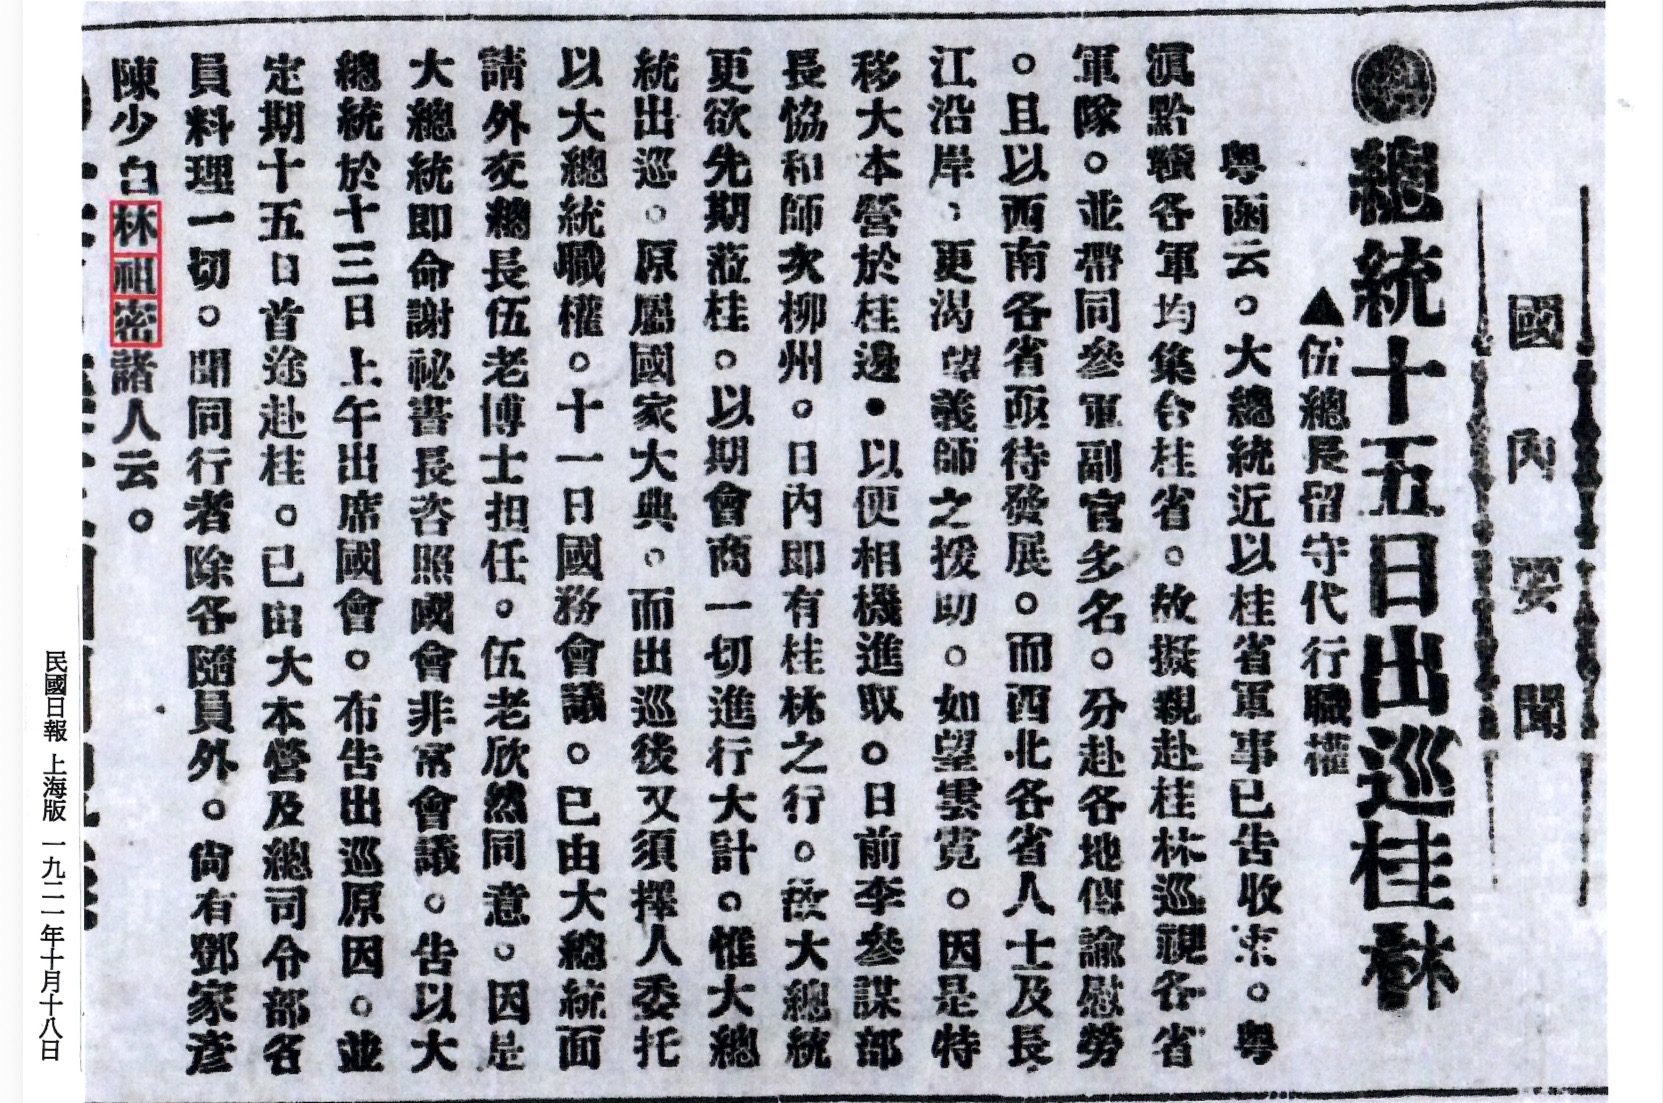 國內要聞
總統十五日出巡桂林
▲伍總長留守代行職權
粵函云。大總統近以桂省軍事已告收束。粵
滇黔贛各軍均集合桂省。故擬親赴桂林巡視各省
軍隊。並帶同參軍副官多名。分赴各地傳諭慰勞
。且以西南各省亟待發展。而西北各省人士及長
江沿岸、更渴望義師之援助。如望雲霓。因是特
移大本營於桂邊•以便相機進取。日前李參謀部
長協和師次柳州。日內即有桂林之行。故大總統
更欲先期蒞桂。以期會商一切進行大計。惟大總
統出巡。原屬國家大典。而出巡後又須擇人委托
以大總統職權。十一日國務會議。已由大總統面
請外交總長伍老博士担任。伍老欣然同意。因是
大總統即命謝祕書長咨照國會非常會議。告以大
總統於十三日上午出席國會。布告出巡原因。並
定期十五日首途赴桂。已由大本營及總司令部各
員料理一切。聞同行者除各隨員外。尙有鄧家彥
陳少白林祖密諸人云。
民國日報 上海版 一九二一年十月十八日